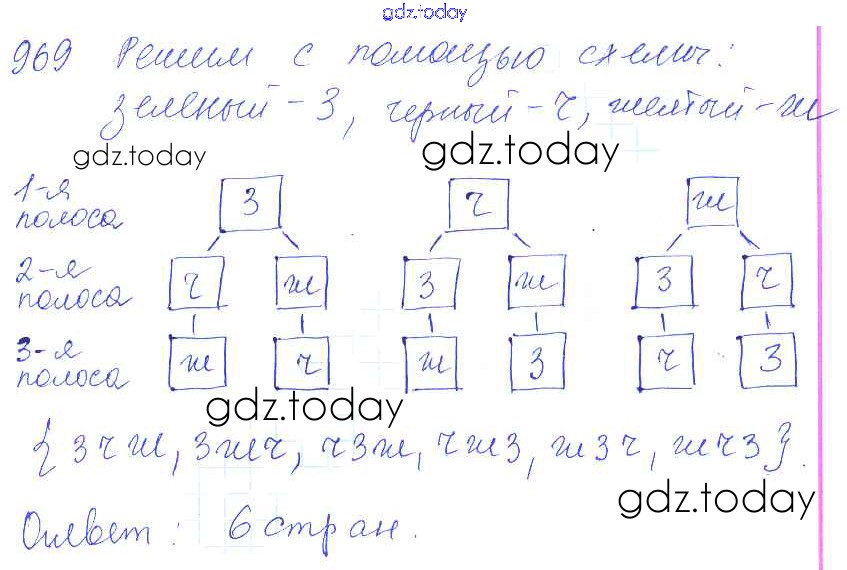 gdz.today
969 Решим с помощью схемы:
зеленый - З, черный - Ч, желтый - Ж
gdz.today gdz.today
1-я полоса З Ч Ж
2-я полоса Ч Ж З Ж З Ч
3-я полоса Ж Ч Ж З Ч З
gdz.today
{ЗЧЖ, ЗЖЧ, ЧЗЖ, ЧЖЗ, ЖЗЧ, ЖЧЗ}.
gdz.today
Ответ: 6 стран.